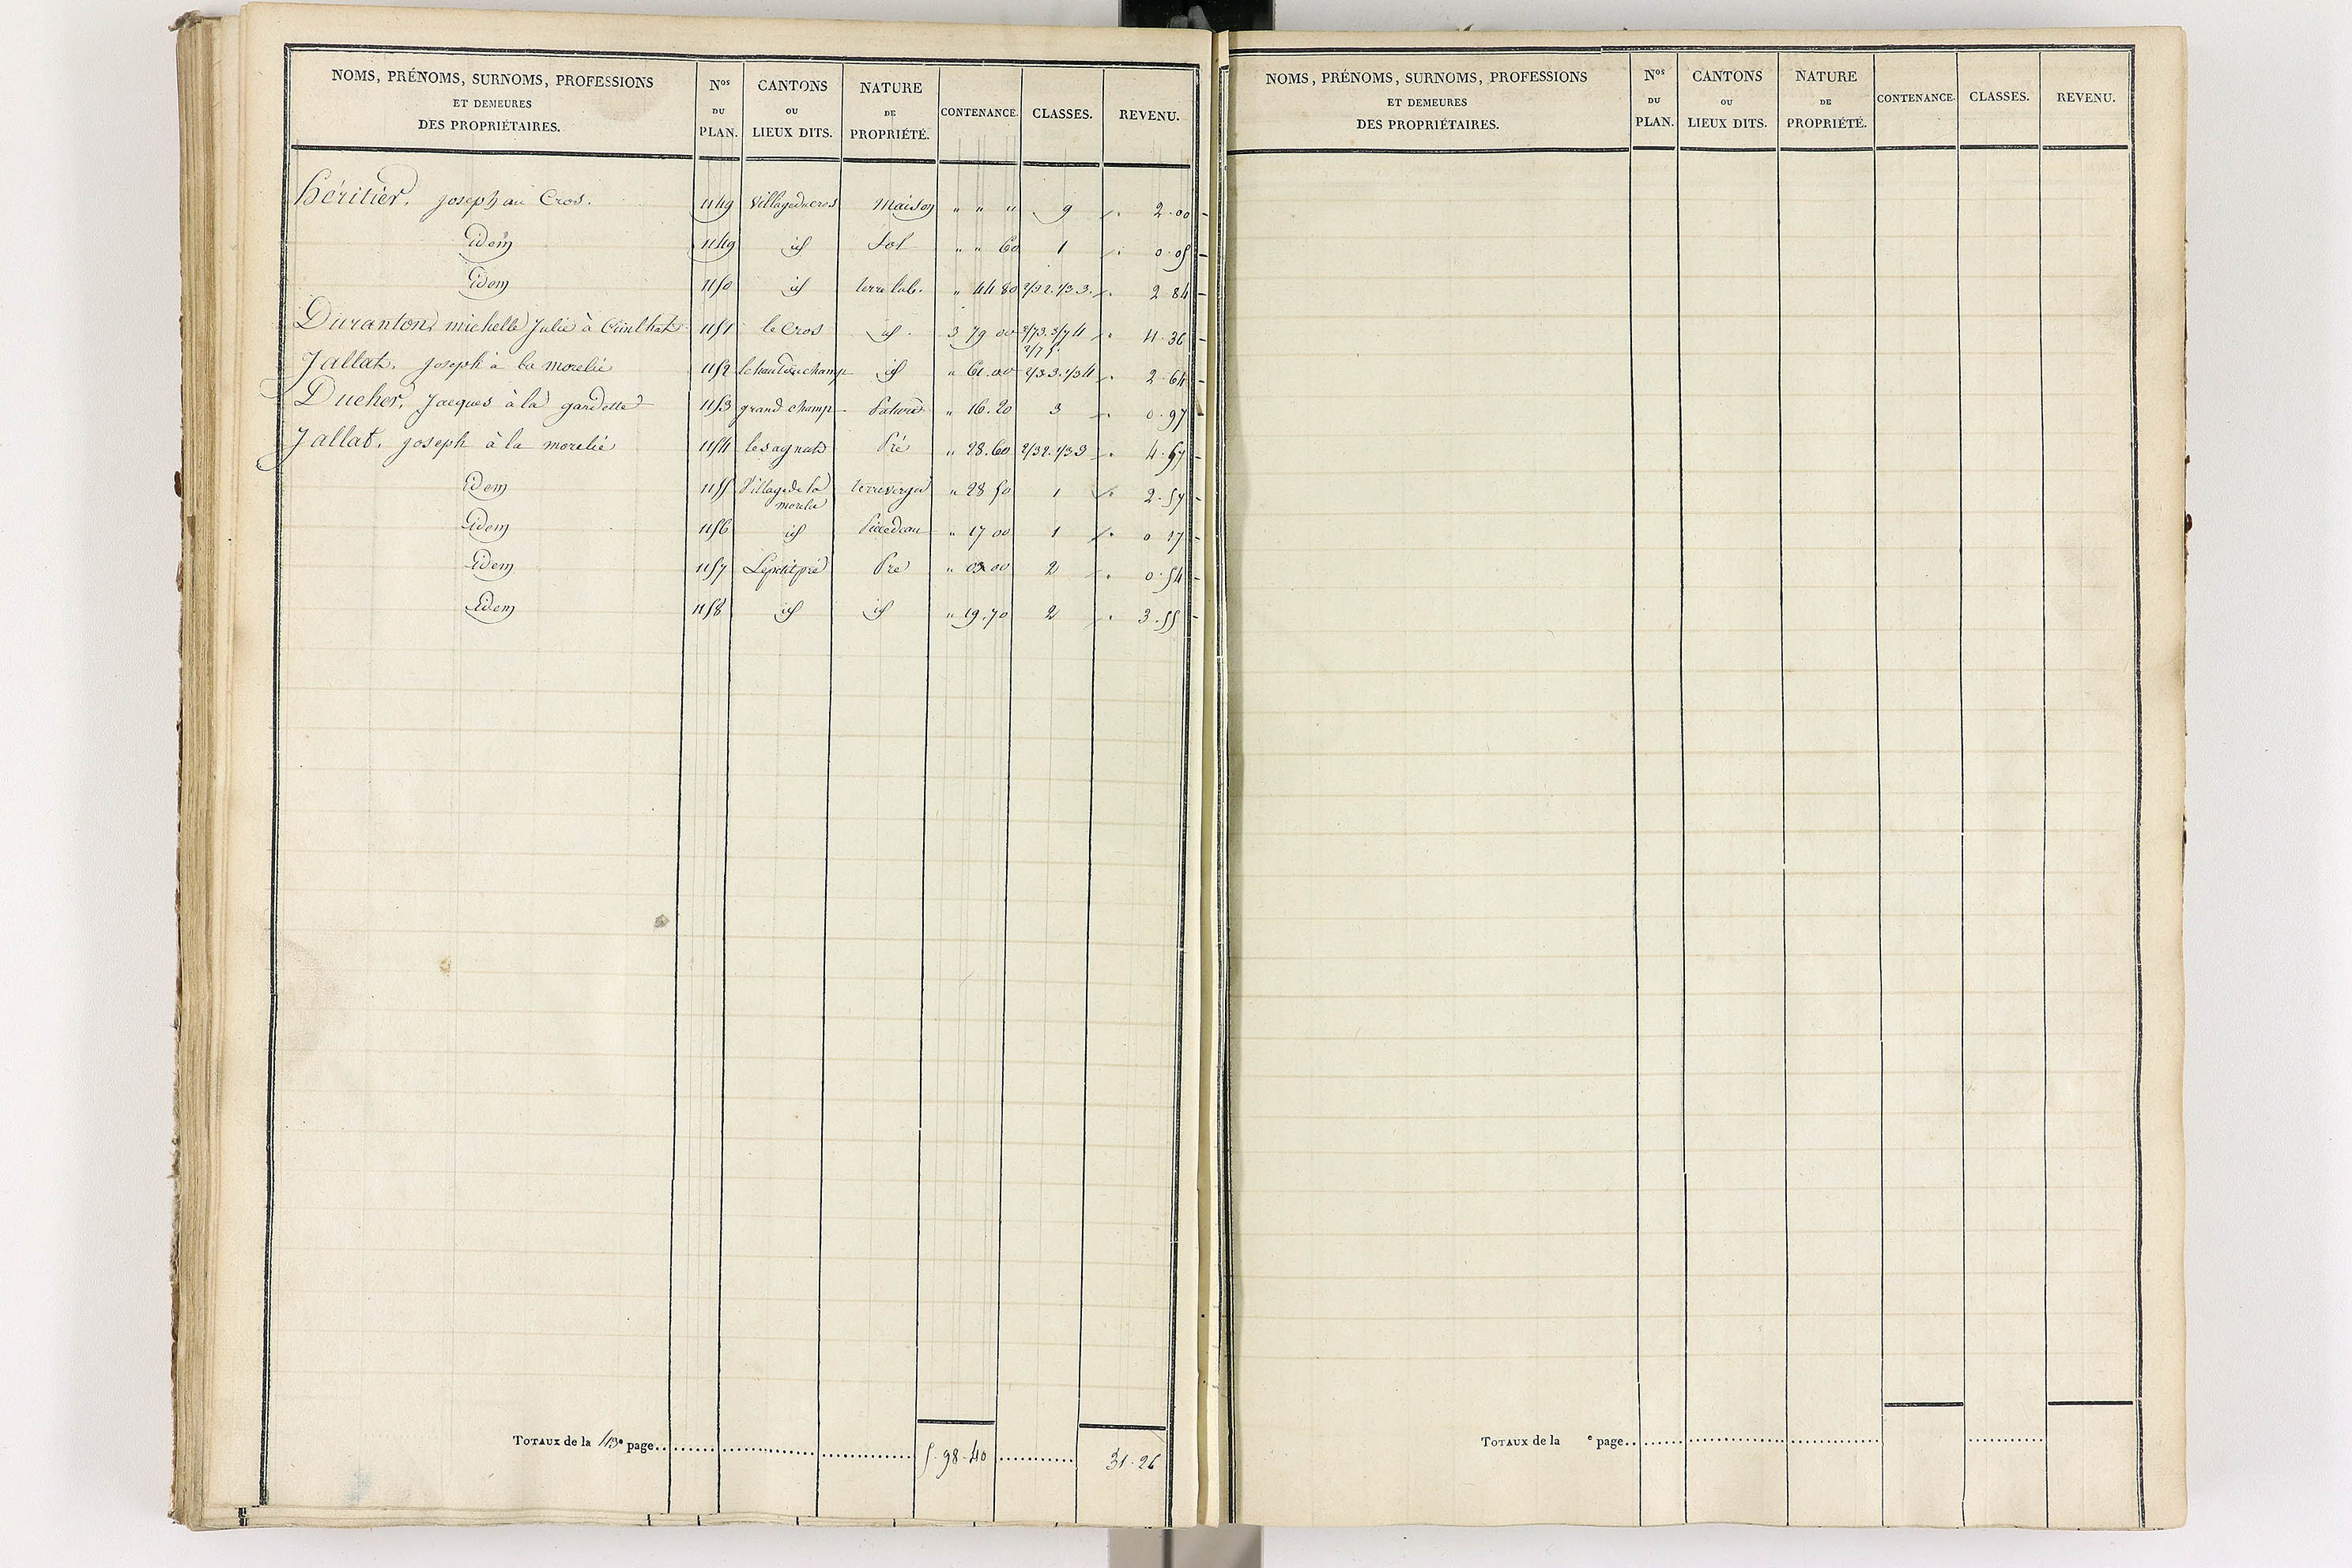 NOMS, PRÉNOMS, SURNOMS, PROFESSIONS ET DEMEURES DES PROPRIÉTAIRES. Nos DU PLAN. CANTONS OU LIEUX DITS. NATURE DE PROPRIÉTÉ. CONTENANCE. CLASSES. REVENU.
héritier. joseph au Cros. 1149 Village du cros Maison " " " 9 2.00
Idem 1149 id Sol " " 60 1 0.05
Idem 1150 id terre lab. " 44 80 2/3 2. 1/3 3. 2 84
Duranton, michelle Julie à 1151 le Cros id. 3 79 00 2/7 3. 3/7 4 4.36
2/7 5.
Jallat. joseph à la morelie 1152 id " 61.00 2/3 3. 1/3 4 2.64
Ducher. Jacques à la gardette 1153 grand champ Pature " 16.20 3 0.97
Jallat. joseph à la morelie 1154 les agnats Pré " 28.60 2/3 2. 1/3 3 4.67
Idem 1155 Village de la terre verger " 28 50 1 2.57
morelie
Idem 1156 id " 17 00 1
Idem 1157 Le petit pré Pré " 03 00 2 0.54
Idem 1158 id id " 19.70 2 3.55
TOTAUX de la 113e page 5.98.40 31.26
NOMS, PRÉNOMS, SURNOMS, PROFESSIONS ET DEMEURES DES PROPRIÉTAIRES. Nos DU PLAN. CANTONS OU LIEUX DITS. NATURE DE PROPRIÉTÉ. CONTENANCE. CLASSES. REVENU.
TOTAUX de la e page